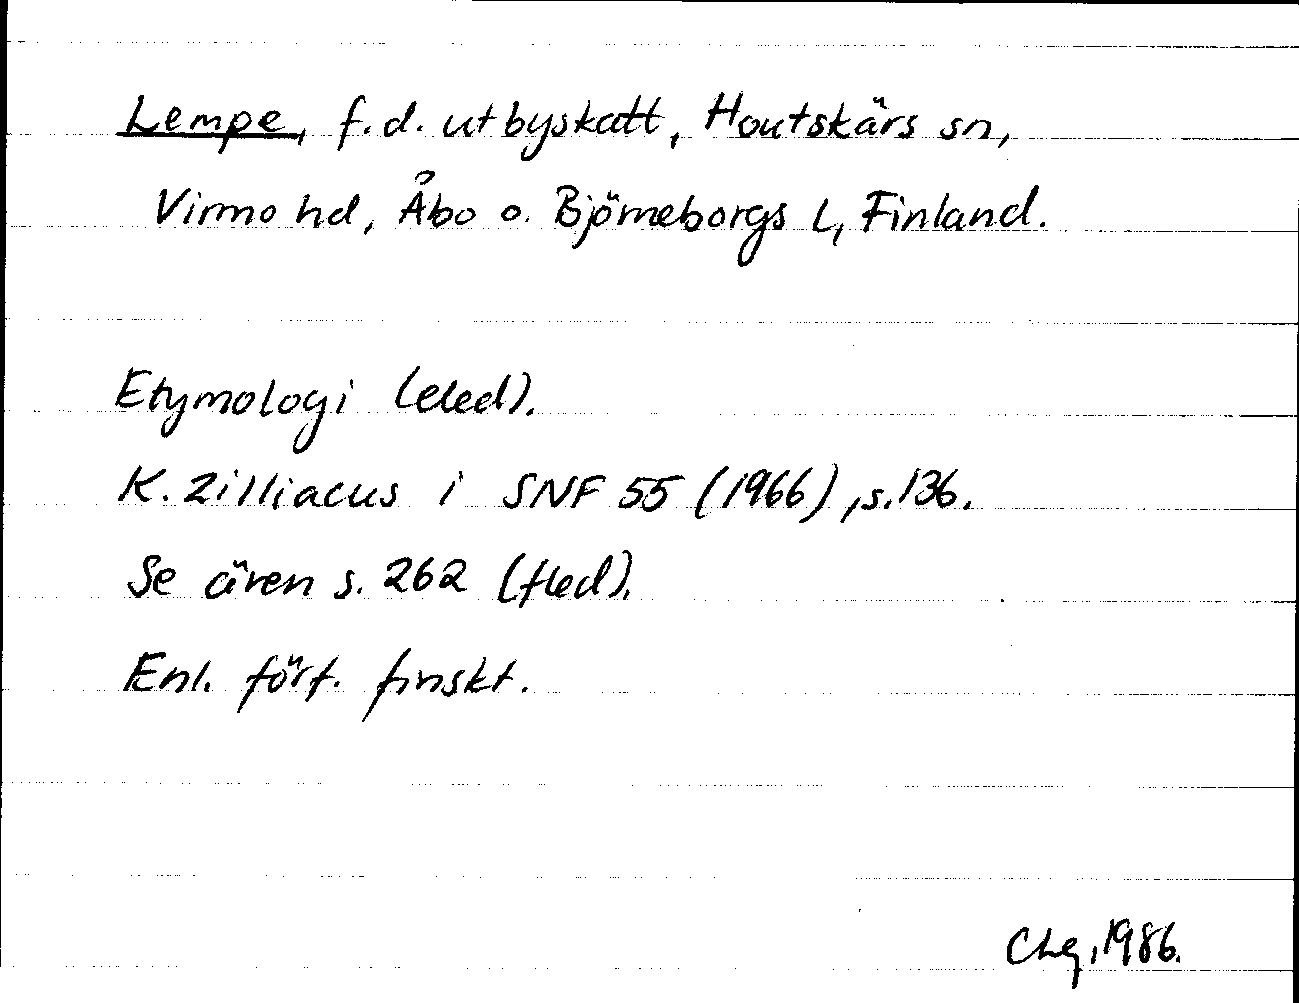 Lempe, f.d. utbyskatt, Houtskärs sn,
Virmo hd, Åbo o. Björneborgs l, Finland.
Etymologi (eled).
K. Zilliacus i SNF 55 (1966), s. 136.
Se även s. 262 (fled).
Enl. förf. finskt.
Chg, 1986.